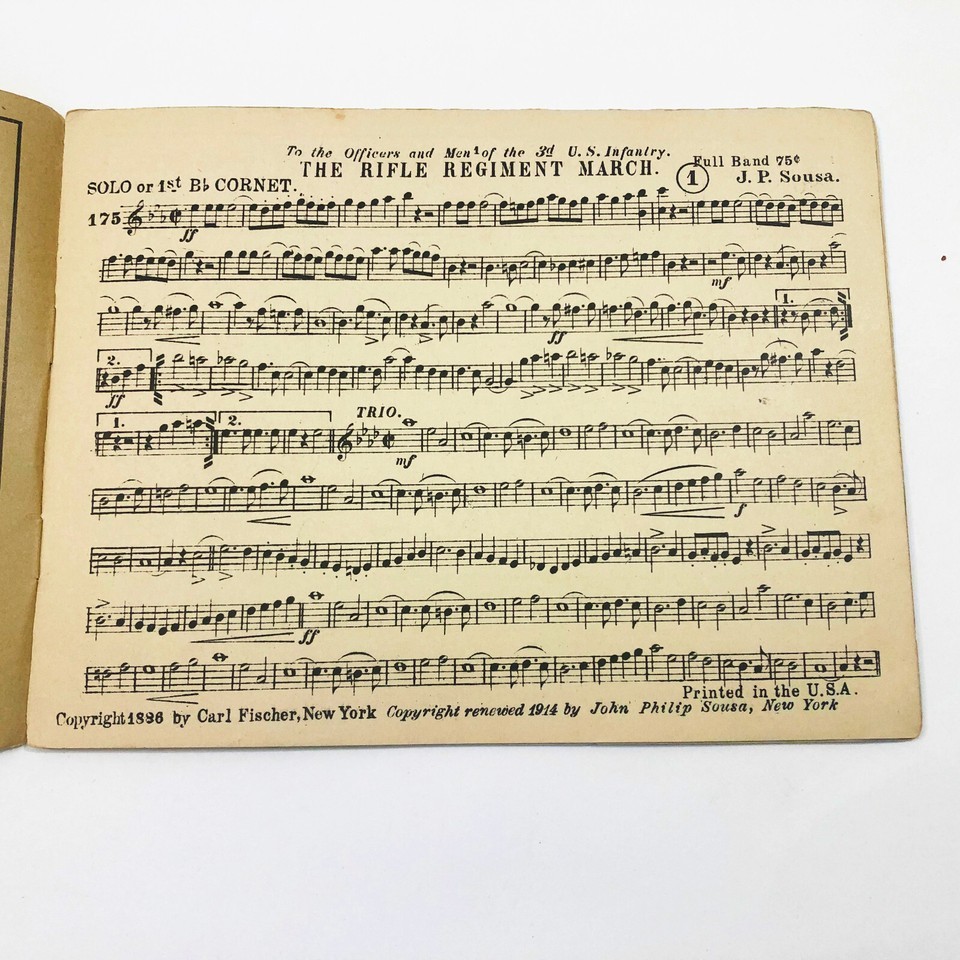 To the Officers and Men of the 3d U.S. Infantry.
THE RIFLE REGIMENT MARCH.
Full Band 75¢
1
J. P. Sousa.
SOLO or 1st B♭ CORNET.
175
ff
mf
ff
1.
2.
ff
1.
2.
TRIO.
mf
f
ff
Printed in the U.S.A.
Copyright 1886 by Carl Fischer, New York Copyright renewed 1914 by John Philip Sousa, New York